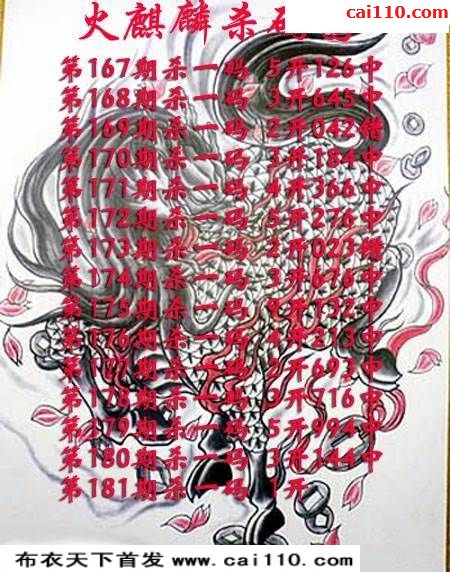 cai110.com
火麒麟杀码
第167期杀一码 5开126中
第168期杀一码 3开645中
第169期杀一码 2开042错
第170期杀一码 3开184中
第171期杀一码 4开366中
第172期杀一码 5开276中
第173期杀一码 2开023错
第174期杀一码 3开676中
第175期杀一码 9开132中
第176期杀一码 4开213中
第177期杀一码 2开693中
第178期杀一码 开716中
第179期杀一码 5开994中
第180期杀一码 3开144中
第181期杀一码 1开
布衣天下首发 www.cai110.com